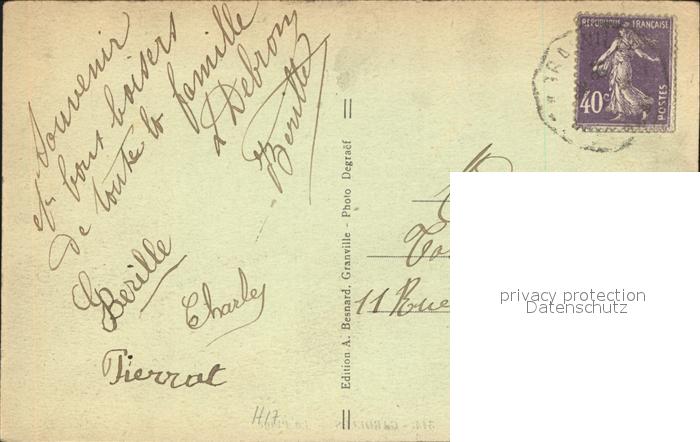 Souvenir
et bons baisers
de toute la famille
Debrou
Berille
G Berille
Charles
Pierrat
H17
Edition A. Besnard, Granville - Photo Degraëf
REPUBLIQUE FRANÇAISE
40c
POSTES
11 Rue
privacy protection
Datenschutz